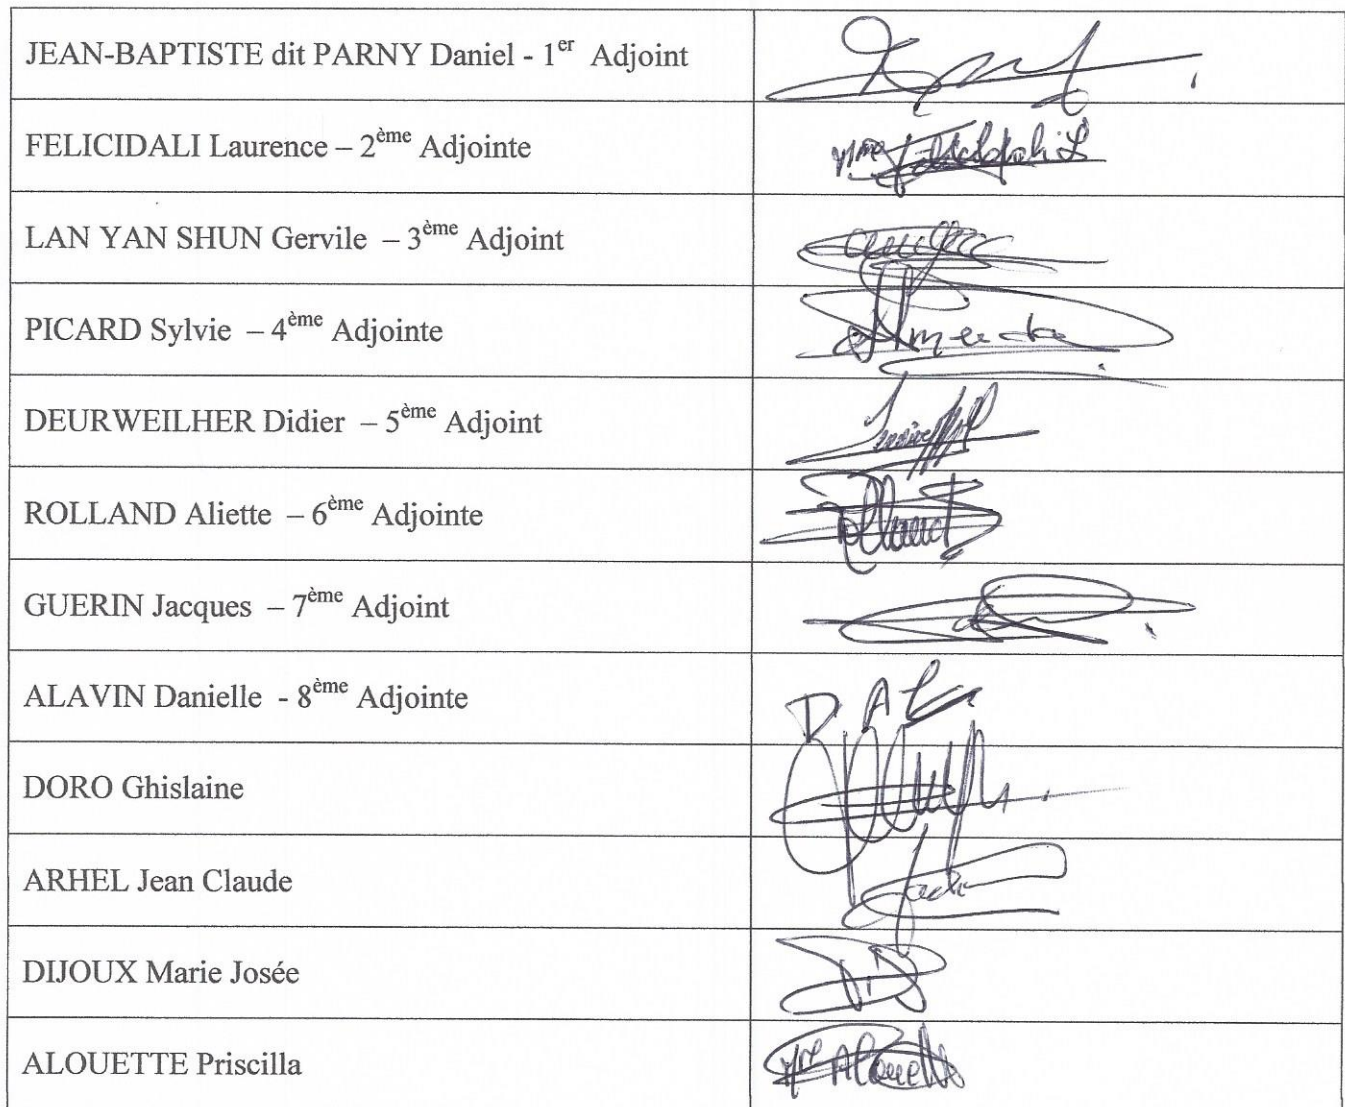 JEAN-BAPTISTE dit PARNY Daniel - 1er Adjoint
FELICIDALI Laurence – 2ème Adjointe
LAN YAN SHUN Gervile – 3ème Adjoint
PICARD Sylvie – 4ème Adjointe
DEURWEILHER Didier – 5ème Adjoint
ROLLAND Aliette – 6ème Adjointe
GUERIN Jacques – 7ème Adjoint
ALAVIN Danielle - 8ème Adjointe
D. A L.
DORO Ghislaine
ARHEL Jean Claude
DIJOUX Marie Josée
ALOUETTE Priscilla
Alouette